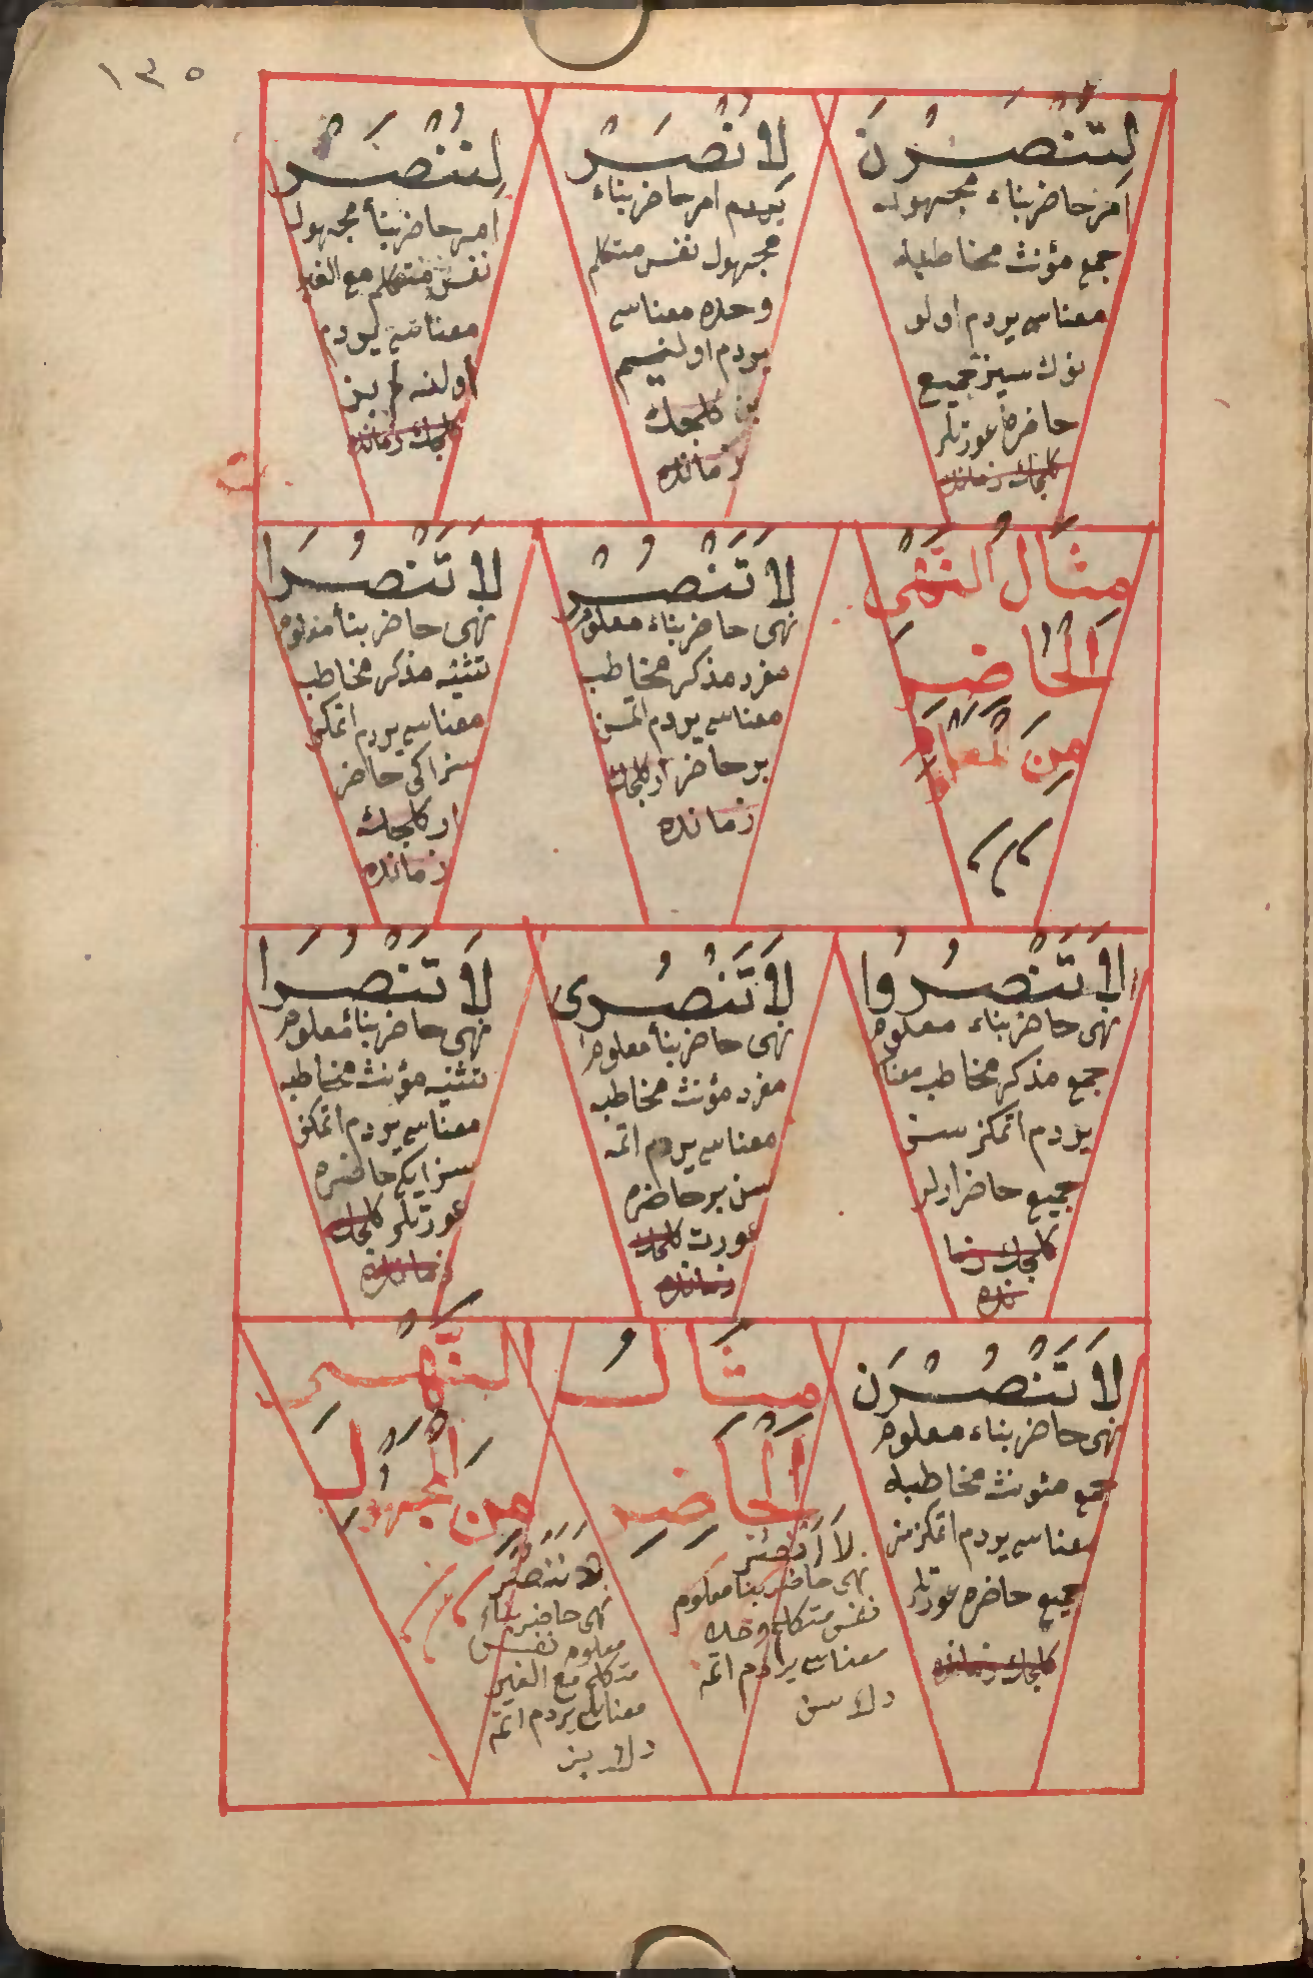 ١٣٥
لِتُنْصَرْنَ
امر حاضر بناء مجهوله
جمع مؤنث مخاطبه
معناسى يردم اولو
نوك سيز جميع
حاضره عورتلر
كلجك زمانده
لِاُنْصَرْ
يردم امر حاضر بناء
مجهول نفس متكلم
وحده معناسى
يردم اولنيم
بن كلجك
زمانده
لِنُنْصَرْ
امر حاضر بنأ مجهول
نفس متكلم مع الغير
معناسى يردم
اولنه لم بز
كلجك زمانده
مِثَالُ النَّهْىِ
الْحَاضِرِ
مِنَ الْمَعْلُومِ
لَا تَنْصُرْ
نهى حاضر بناء معلوم
مفرد مذكر مخاطب
معناسى يردم اتمسن
بر حاضر ار كلجك
زمانده
لَا تَنْصُرَا
نهى حاضر بنأ معلوم
تثنيه مذكر مخاطب
معناسى يردم اتمكز
سز اكى حاضر
ار كلجك
زمانده
لَا تَنْصُرُوا
نهى حاضر بناء معلوم
جمع مذكر مخاطب معنا
يردم اتمكز سز
جميع حاضر ارلر
كلجك زما
نده
لَا تَنْصُرِى
نهى حاضر بنأ معلوم
مفرد مؤنث مخاطبه
معناسى يردم اتمه
سن بر حاضره
عورت كلجك
زمانده
لَا تَنْصُرَا
نهى حاضر بنأ معلوم
تثنيه مؤنث مخاطبه
معناسى يردم اتمكز
سز ايكى حاضره
عورتلر كلجك
زمانده
لَا تَنْصُرْنَ
نهى حاضر بناء معلوم
جمع مئونث مخاطبه
معناسى يردم اتمكز سز
جميع حاضره عورتلر
كلجك زمانده
مِثَالُ
الْحَاضِرِ
لَا اَنْصُرْ
نهى حاضر بنا معلوم
نفس متكلم وحده
معناسى يردم اتمه
النَّهْىِ
مِنَ الْمَجْهُولِ
لَا نَنْصُرْ
نهى حاضر بناء
معلوم نفس
متكلم مع الغير
معناسى يردم اتمه